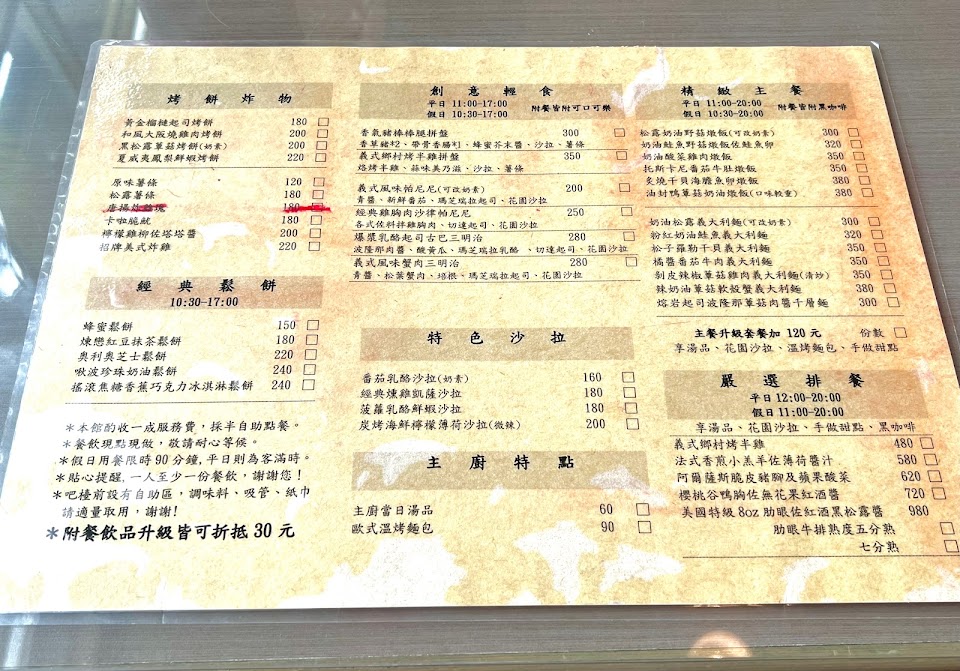 烤餅炸物
黃金榴槤起司烤餅 180
和風大阪燒雞肉烤餅 200
黑松露蕈菇烤餅(奶素) 200
夏威夷鳳梨鮮蝦烤餅 220
原味薯條 120
松露薯條 180
唐揚炸雞塊 180
卡啦脆魷 180
檸檬雞柳佐塔塔醬 200
招牌美式炸雞 220
經典鬆餅
10:30-17:00
蜂蜜鬆餅 150
煉戀紅豆抹茶鬆餅 180
奧利奧芝士鬆餅 220
啾波珍珠奶油鬆餅 240
搖滾焦糖香蕉巧克力冰淇淋鬆餅 240
＊本館酌收一成服務費，採半自助點餐。
＊餐飲現點現做，敬請耐心等候。
＊假日用餐限時90分鐘，平日則為客滿時。
＊貼心提醒，一人至少一份餐飲，謝謝您！
＊吧檯前設有自助區，調味料、吸管、紙巾
請適量取用，謝謝！
＊附餐飲品升級皆可折抵30元
創意輕食
平日 11:00-17:00 附餐皆附可口可樂
假日 10:30-17:00
香氣豬棒棒腿拼盤 300
香草豬*2、帶骨香腸*1、蜂蜜芥末醬、沙拉、薯條
義式鄉村烤半雞拼盤 350
烙烤半雞、蒜味美乃滋、沙拉、薯條
義式風味帕尼尼(可改奶素) 200
青醬、新鮮番茄、瑪芝瑞拉起司、花園沙拉
經典雞胸肉沙律帕尼尼 250
各式佐料拌雞肉、切達起司、花園沙拉
爆漿乳酪起司古巴三明治 280
波隆那肉醬、酸黃瓜、瑪芝瑞拉乳酪、切達起司、花園沙拉
義式風味蟹肉三明治 280
青醬、松葉蟹肉、培根、瑪芝瑞拉起司、花園沙拉
特色沙拉
番茄乳酪沙拉(奶素) 160
經典燻雞凱薩沙拉 180
菠蘿乳酪鮮蝦沙拉 180
炭烤海鮮檸檬薄荷沙拉(微辣) 200
主廚特點
主廚當日湯品 60
歐式溫烤麵包 90
精緻主餐
平日 11:00-20:00 附餐皆附黑咖啡
假日 10:30-20:00
松露奶油野菇燉飯(可改奶素) 300
奶油鮭魚野菇燉飯佐鮭魚卵 320
奶油酸菜雞肉燉飯 350
托斯卡尼番茄牛肚燉飯 350
炙燒干貝海膽魚卵燉飯 380
油封鴨蕈菇奶油燉飯(口味較重) 380
奶油松露義大利麵(可改奶素) 300
粉紅奶油鮭魚義大利麵 320
松子羅勒干貝義大利麵 350
橘醬番茄牛肉義大利麵 350
剝皮辣椒蕈菇雞肉義大利麵(清炒) 350
辣奶油蕈菇軟殼蟹義大利麵 380
熔岩起司波隆那蕈菇肉醬千層麵 300
主餐升級套餐加120元 份數
享湯品、花園沙拉、溫烤麵包、手做甜點
嚴選排餐
平日 12:00-20:00
假日 11:00-20:00
享湯品、花園沙拉、手做甜點、黑咖啡
義式鄉村烤半雞 480
法式香煎小羔羊佐薄荷醬汁 580
阿爾薩斯脆皮豬腳及蘋果酸菜 620
櫻桃谷鴨胸佐無花果紅酒醬 720
美國特級8oz肋眼佐紅酒黑松露醬 980
肋眼牛排熟度五分熟
七分熟